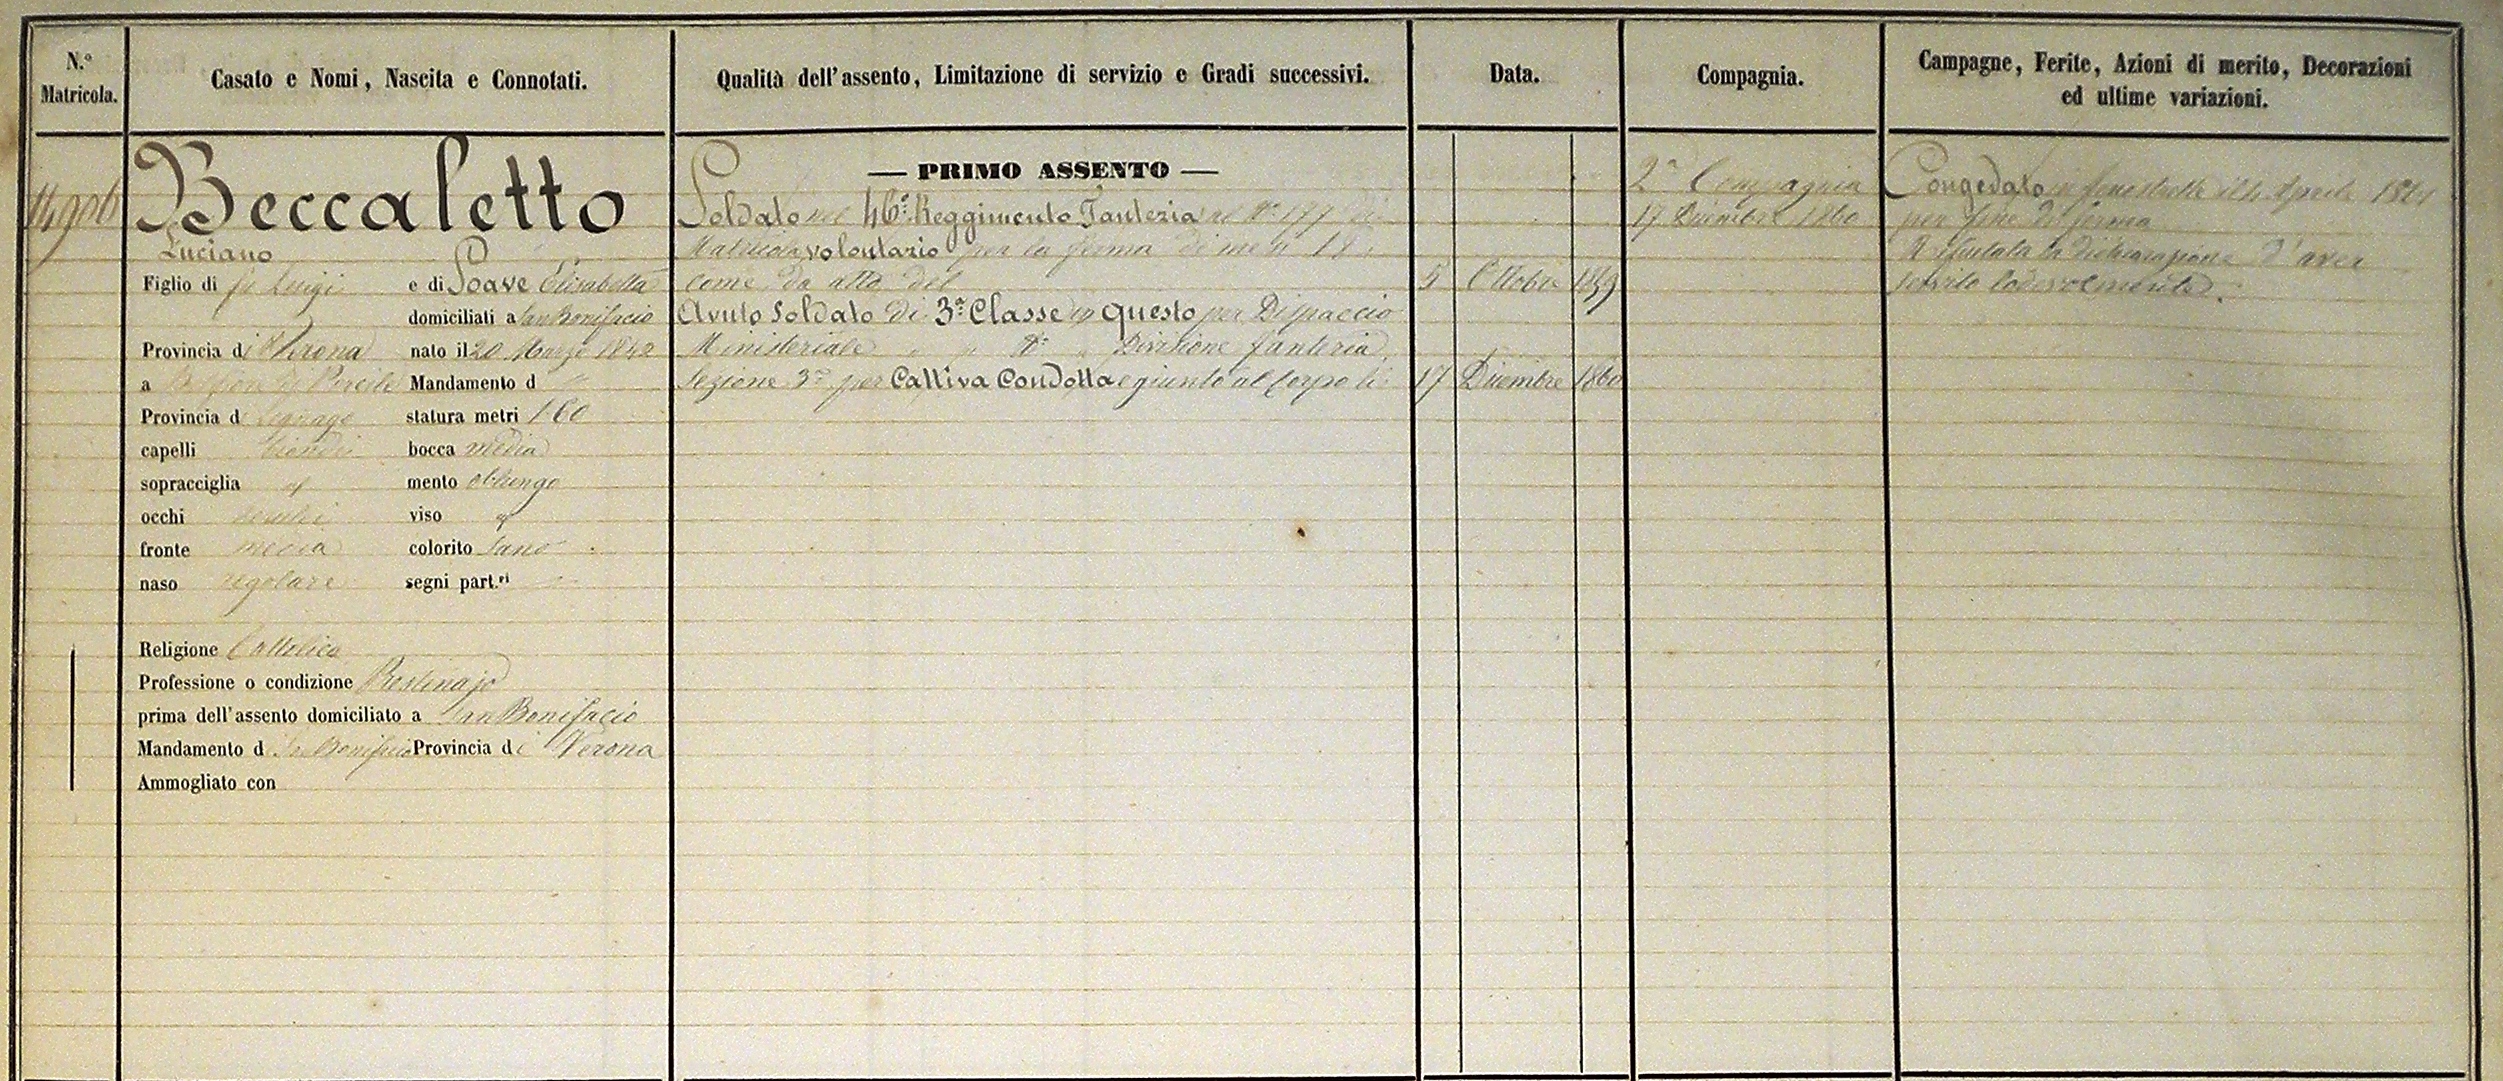 N.° Matricola.
Casato e Nomi, Nascita e Connotati.
Qualità dell'assento, Limitazione di servizio e Gradi successivi.
Data.
Compagnia.
Campagne, Ferite, Azioni di merito, Decorazioni
ed ultime variazioni.
14906
Beccaletto
Luciano
Figlio di fu Luigi e di Soave Elisabetta
domiciliati a San Bonifacio
Provincia di Verona nato il 20 Marzo 1842
a Mandamento d "
Provincia d Legnago statura metri 1 60
capelli biondi bocca media
sopracciglia mento oblungo
occhi viso
fronte media colorito sano
naso regolare segni part.ri
Religione Cattolica
Professione o condizione Prestinajo
prima dell'assento domiciliato a San Bonifacio
Mandamento d Sn Bonifacio Provincia di Verona
Ammogliato con
— PRIMO ASSENTO —
Soldato nel 46° Reggimento Fanteria al N° 177 di
Matricola volontario per la ferma di mesi 18
come da atto del 5 Ottobre 1859
Avuto Soldato di 3ª Classe in questo per Dispaccio
Ministeriale " " N° " Divisione fanteria
Sezione 3ª per Cattiva Condotta e giunto al Corpo li 17 Dicembre 1860
2ª Compagnia
17 Dicembre 1860
Congedato in fenestrelle il 4 Aprile 1861
per fine di ferma
Rifiutata la dichiarazione d'aver
servito lodevolmente.